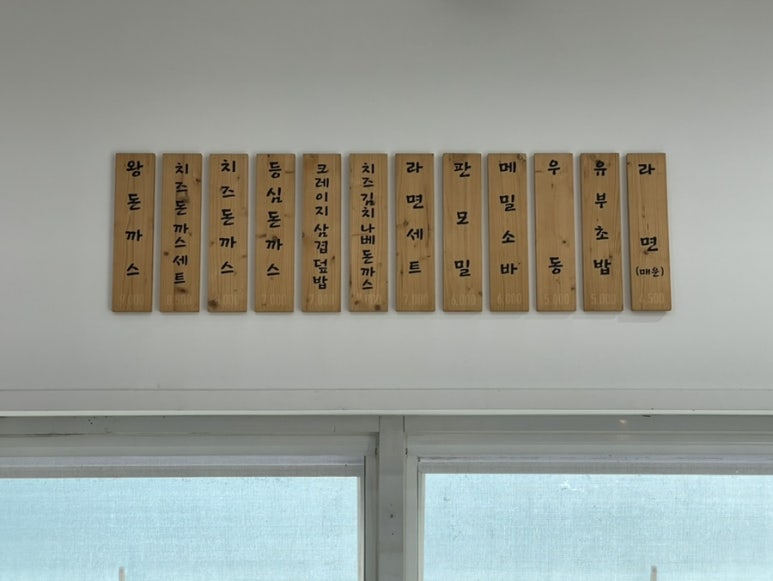 왕돈까스
9,000
치즈돈까스세트
치즈돈까스
등심돈까스
크레이지삼겹덮밥
치즈김치나베돈까스
라면세트
7,000
판모밀
6,000
메밀소바
6,000
우동
5,000
유부초밥
5,000
라면
(매운)
4,500